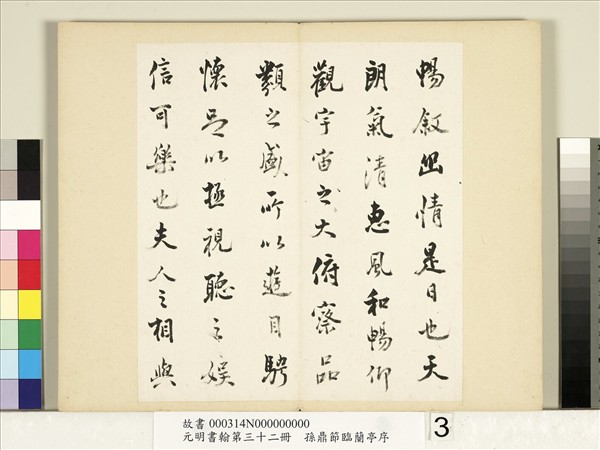 暢敘幽情是日也天
朗氣清惠風和暢仰
觀宇宙之大俯察品
類之盛所以遊目騁
懷足以極視聽之娛
信可樂也夫人之相與
故書 000314N000000000
元明書翰第三十二冊 孫鼎節臨蘭亭序
3